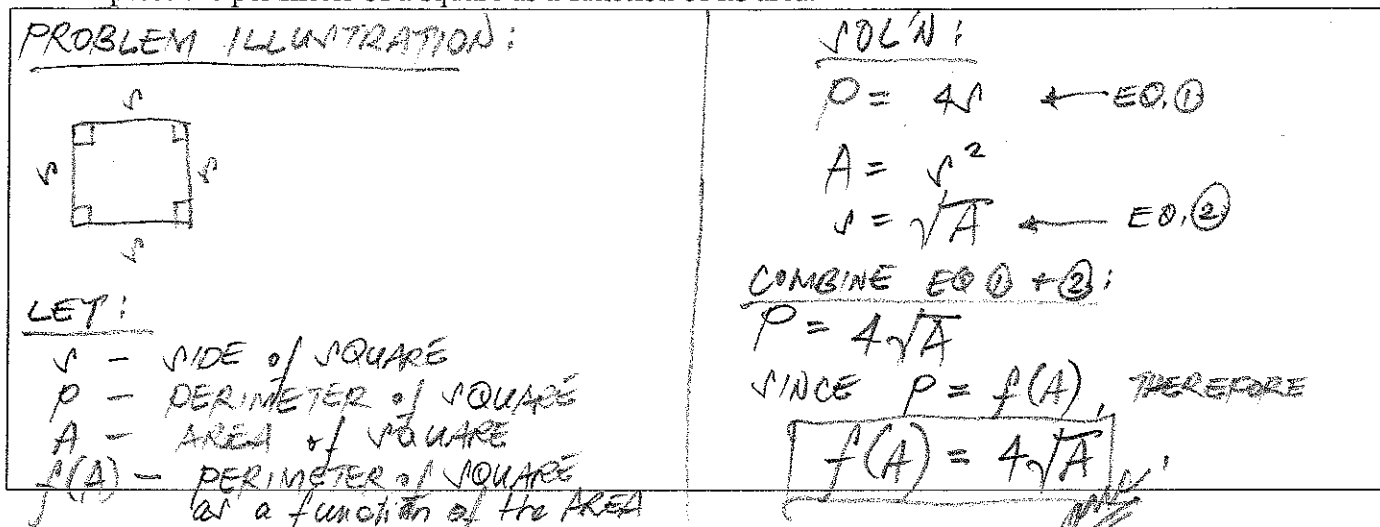 perimeter of a square as a function of its area.
PROBLEM ILLUSTRATION:
s
s
s
s
LET:
s - SIDE of SQUARE
P - PERIMETER of SQUARE
A - AREA of SQUARE
f(A) - PERIMETER of SQUARE
as a function of the AREA
SOL'N:
P = 4s ← EQ. ①
A = s²
s = √A ← EQ. ②
COMBINE EQ ① + ②:
P = 4√A
SINCE P = f(A), THEREFORE
f(A) = 4√A